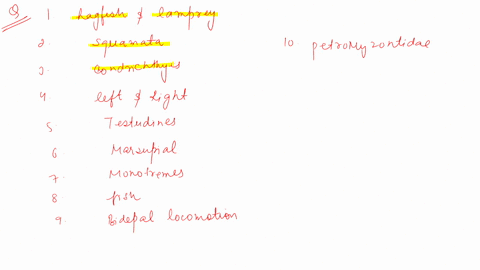 Q 1 hagfish & lamprey
2. squamata
3. Condrichthyes
4 left & right
5 Testudines
6 Marsupial
7. Monotremes
8 fish
9. Bidepal locomotion
10. petromyzontidae